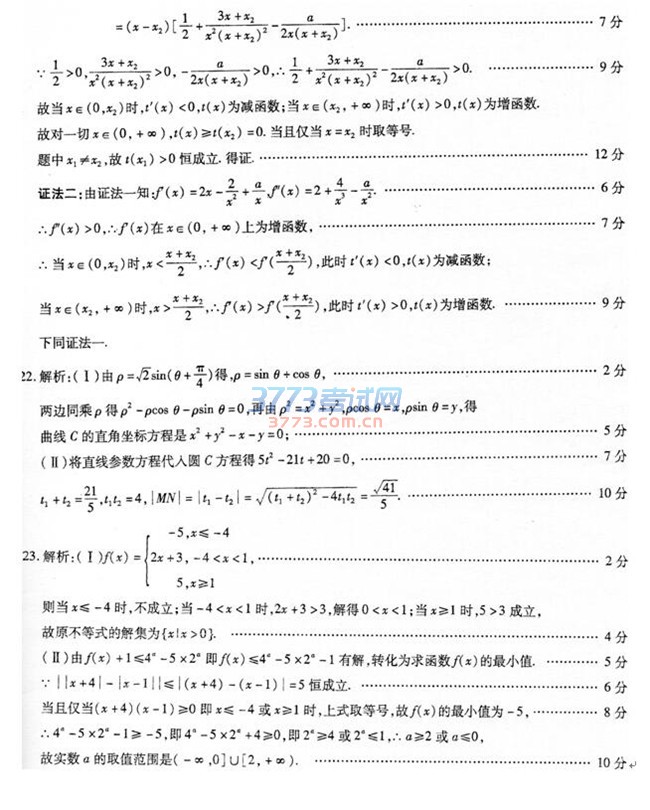 =(x-x₂)[1/2+(3x+x₂)/(x²(x+x₂)²)-a/(2x(x+x₂))]. ……………… 7分
∵1/2>0,(3x+x₂)/(x²(x+x₂)²)>0,-a/(2x(x+x₂))>0,∴1/2+(3x+x₂)/(x²(x+x₂)²)-a/(2x(x+x₂))>0. ……………… 9分
故当x∈(0,x₂)时,t′(x)<0,t(x)为减函数;当x∈(x₂,+∞)时,t′(x)>0,t(x)为增函数.
故对一切x∈(0,+∞),t(x)≥t(x₂)=0.当且仅当x=x₂时取等号.
题中x₁≠x₂,故t(x₁)>0恒成立.得证. ……………… 12分
证法二:由证法一知:f′(x)=2x-2/x²+a/x,f″(x)=2+4/x³-a/x². ……………… 6分
∴f″(x)>0,∴f′(x)在x∈(0,+∞)上为增函数, ……………… 7分
∴当x∈(0,x₂)时,x<(x+x₂)/2,∴f′(x)<f′((x+x₂)/2),此时t′(x)<0,t(x)为减函数;
当x∈(x₂,+∞)时,x>(x+x₂)/2,∴f′(x)>f′((x+x₂)/2),此时t′(x)>0,t(x)为增函数. ……………… 9分
下同证法一.
22.解析:(Ⅰ)由ρ=√2sin(θ+π/4)得,ρ=sin θ+cos θ, ……………… 2分
3773考试网
两边同乘ρ得ρ²-ρcos θ-ρsin θ=0,再由ρ²=x²+y²,ρcos θ=x,ρsin θ=y,得
3773.com.cn
曲线C的直角坐标方程是x²+y²-x-y=0; ……………… 5分
(Ⅱ)将直线参数方程代入圆C方程得5t²-21t+20=0, ……………… 7分
t₁+t₂=21/5,t₁t₂=4,|MN|=|t₁-t₂|=√((t₁+t₂)²-4t₁t₂)=√41/5. ……………… 10分
-5,x≤-4
23.解析:(Ⅰ)f(x)={2x+3,-4<x<1, ……………… 2分
5,x≥1
则当x≤-4时,不成立;当-4<x<1时,2x+3>3,解得0<x<1;当x≥1时,5>3成立,
故原不等式的解集为{x|x>0}. ……………… 4分
(Ⅱ)由f(x)+1≤4ᵃ-5×2ᵃ即f(x)≤4ᵃ-5×2ᵃ-1有解,转化为求函数f(x)的最小值. ……………… 5分
∵||x+4|-|x-1||≤|(x+4)-(x-1)|=5恒成立. ……………… 6分
当且仅当(x+4)(x-1)≥0即x≤-4或x≥1时,上式取等号,故f(x)的最小值为-5, ……………… 8分
∴4ᵃ-5×2ᵃ-1≥-5,即4ᵃ-5×2ᵃ+4≥0,即2ᵃ≥4或2ᵃ≤1,∴a≥2或a≤0,
故实数a的取值范围是(-∞,0]∪[2,+∞). ……………… 10分